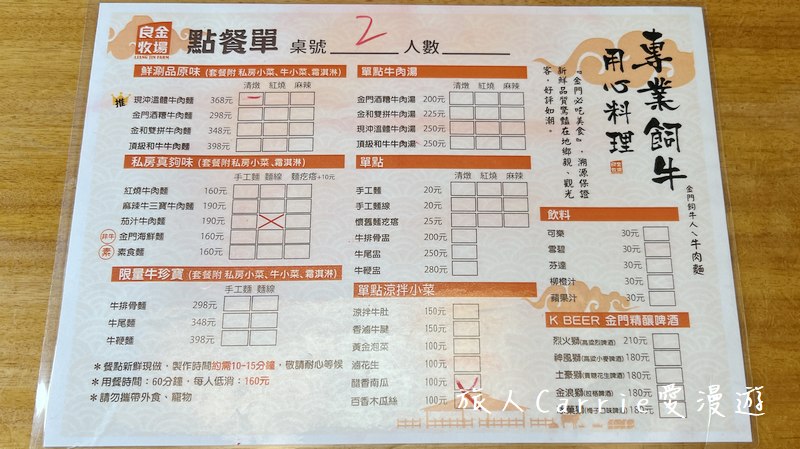 良金牧場
LIANG JIN FARM
點餐單 桌號 2 人數
鮮涮品原味 (套餐附 私房小菜、牛小菜、霜淇淋)
清燉 紅燒 麻辣
推 現沖溫體牛肉麵 368元
金門酒糟牛肉麵 298元
金和雙拼牛肉麵 348元
頂級和牛牛肉麵 398元
私房真夠味 (套餐附 私房小菜、霜淇淋)
手工麵 麵線 麵疙瘩+10元
紅燒牛肉麵 160元
麻辣牛三寶牛肉麵 190元
茄汁牛肉麵 190元
非牛 金門海鮮麵 160元
素 素食麵 160元
限量牛珍寶 (套餐附 私房小菜、牛小菜、霜淇淋)
手工麵 麵線
牛排骨麵 298元
牛尾麵 348元
牛鞭麵 398元
＊餐點新鮮現做，製作時間約需10~15分鐘，敬請耐心等候
＊用餐時間：60分鐘，每人低消：160元
＊請勿攜帶外食、寵物
單點牛肉湯
清燉 紅燒 麻辣
金門酒糟牛肉湯 200元
金和雙拼牛肉湯 225元
現沖溫體牛肉湯 250元
頂級和牛牛肉湯 250元
單點
清燉 紅燒 麻辣
手工麵 20元
手工麵線 20元
懷舊麵疙瘩 25元
牛排骨盅 200元
牛尾盅 250元
牛鞭盅 280元
單點涼拌小菜
涼拌牛肚 150元
香滷牛腱 150元
黃金泡菜 100元
滷花生 100元
醋香南瓜 100元
百香木瓜絲 100元
專業飼牛
用心料理
『金門必吃美食』，溯源保證
新鮮品質驚豔在地鄉親、觀光
客，好評如潮。
金門飼牛人ㄟ牛肉麵
飲料
可樂 30元
雪碧 30元
芬達 30元
柳橙汁 30元
蘋果汁 30元
K BEER 金門精釀啤酒
烈火獅(高粱烈啤酒) 210元
神風獅(高粱小麥啤酒) 180元
土豪獅(貢糖花生啤酒) 180元
金浪獅(拉格啤酒) 180元
180元
旅人Carrie愛漫遊